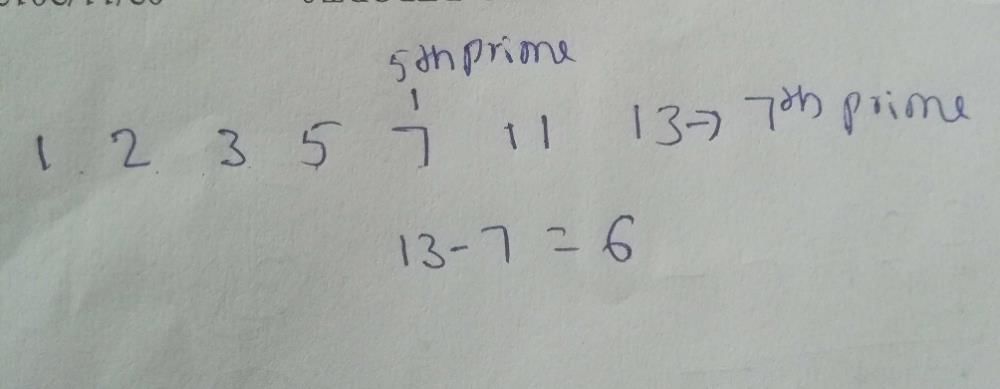 5th prime
1 2 3 5 7 11 13 → 7th prime
13 - 7 = 6